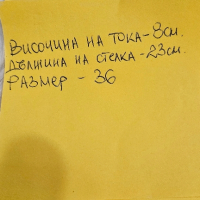 Височина на тока - 8см.
Дължина на стелка - 23см.
Размер - 36